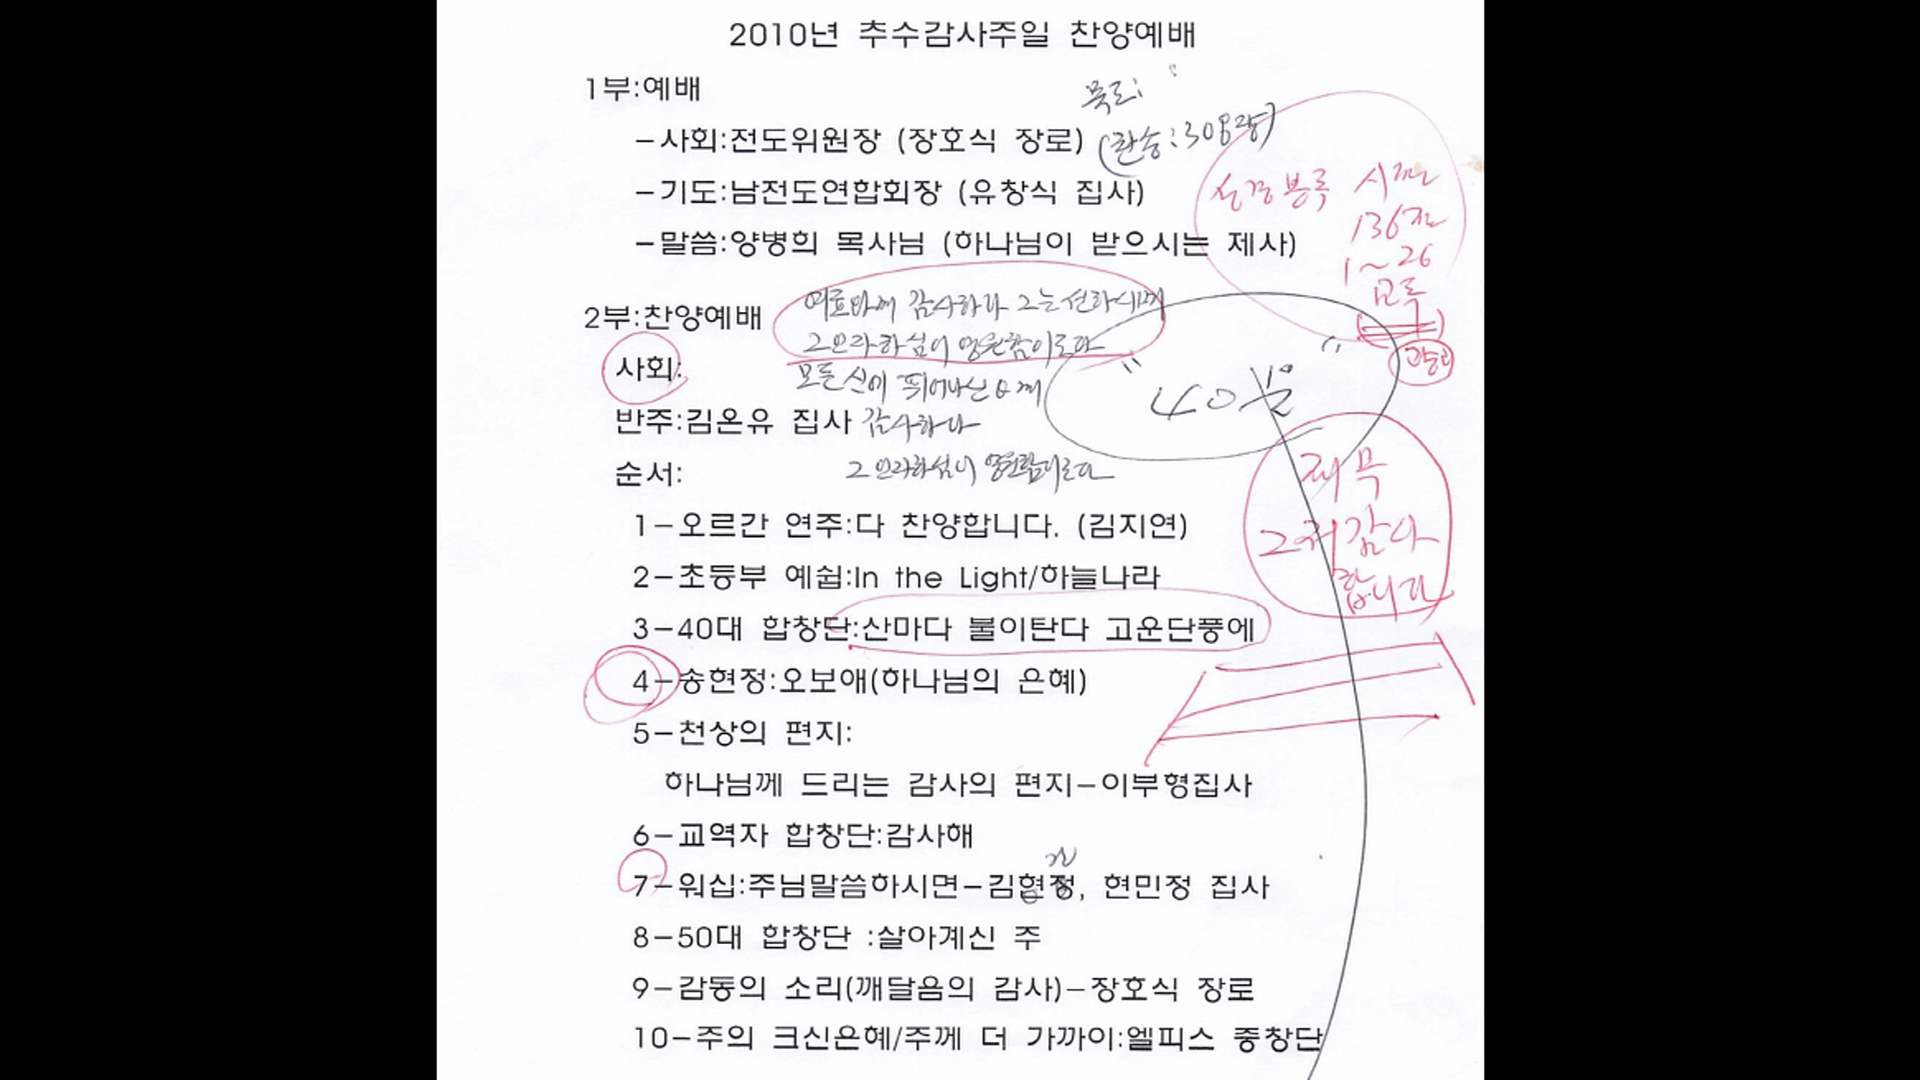 2010년 추수감사주일 찬양예배
1부:예배
묵도:
-사회:전도위원장 (장호식 장로) (찬송:308장)
-기도:남전도연합회장 (유창식 집사)
성경봉독 시편
136편
1~26
교독
-말씀:양병희 목사님 (하나님이 받으시는 제사)
여호와께 감사하라 그는 선하시며
2부:찬양예배
그 인자하심이 영원함이로다
사회:
모든 신에 뛰어나신 이께
"40분"
반주:김온유 집사 감사하라
순서:
그 인자하심이 영원함이로다
제목
그저 감사
합니다
1-오르간 연주:다 찬양합니다. (김지연)
2-초등부 예쉽:In the Light/하늘나라
3-40대 합창단:산마다 불이탄다 고운단풍에
4-송현정:오보애(하나님의 은혜)
5-천상의 편지:
하나님께 드리는 감사의 편지-이부형집사
6-교역자 합창단:감사해
7-워십:주님말씀하시면-김형정, 현민정 집사
8-50대 합창단 :살아계신 주
9-감동의 소리(깨달음의 감사)-장호식 장로
10-주의 크신은혜/주께 더 가까이:엘피스 중창단